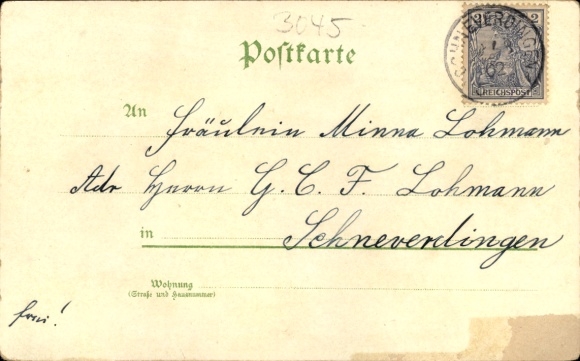 3045
Postkarte
2
SCHNEVERDINGEN
1
02
REICHSPOST
An Fräulein Minna Lohmann
Adr Herrn G. C. F. Lohmann
in Schneverdingen
Wohnung
(Straße und Hausnummer)
frei!